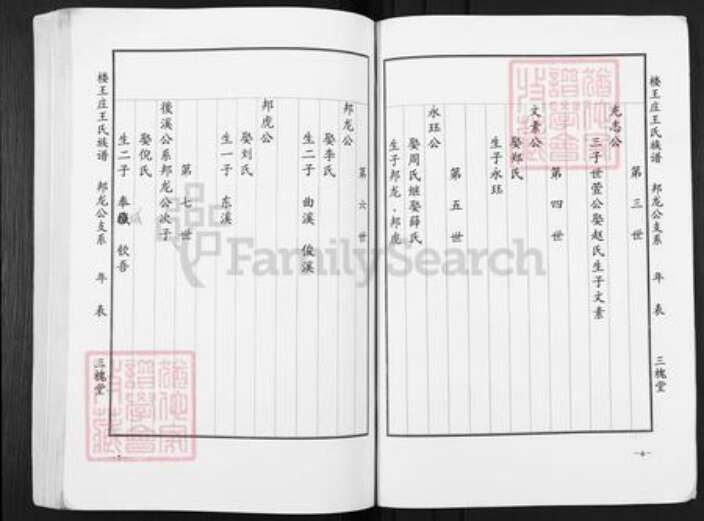 楼王庄王氏族谱 邦龙公支系 年表 三槐堂
第三世
尤志公
三子世萱公娶赵氏生子文素
第四世
文素公
娶郑氏
生子永珏
第五世
永珏公
娶周氏继娶薛氏
生子邦龙·邦虎
-4-
第六世
邦龙公
娶李氏
生二子 曲溪 俊溪
邦虎公
娶刘氏
生一子 东溪
第七世
後溪公系邦龙公次子
娶倪氏
生二子 奉 钦吾
楼王庄王氏族谱 邦龙公支系 年表 三槐堂
FamilySearch